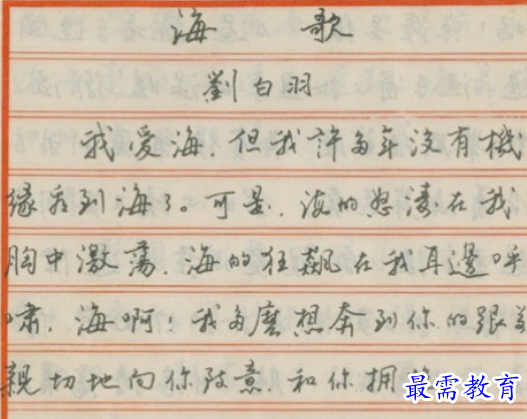 海 歌
劉白羽
我爱海，但我許多年没有機
缘看到海了。可是，海的怒濤在我
胸中激荡，海的狂飙在我耳邊呼
嘯，海啊！我多麽想奔到你的跟
親切地向你致意，和你拥
最需教育